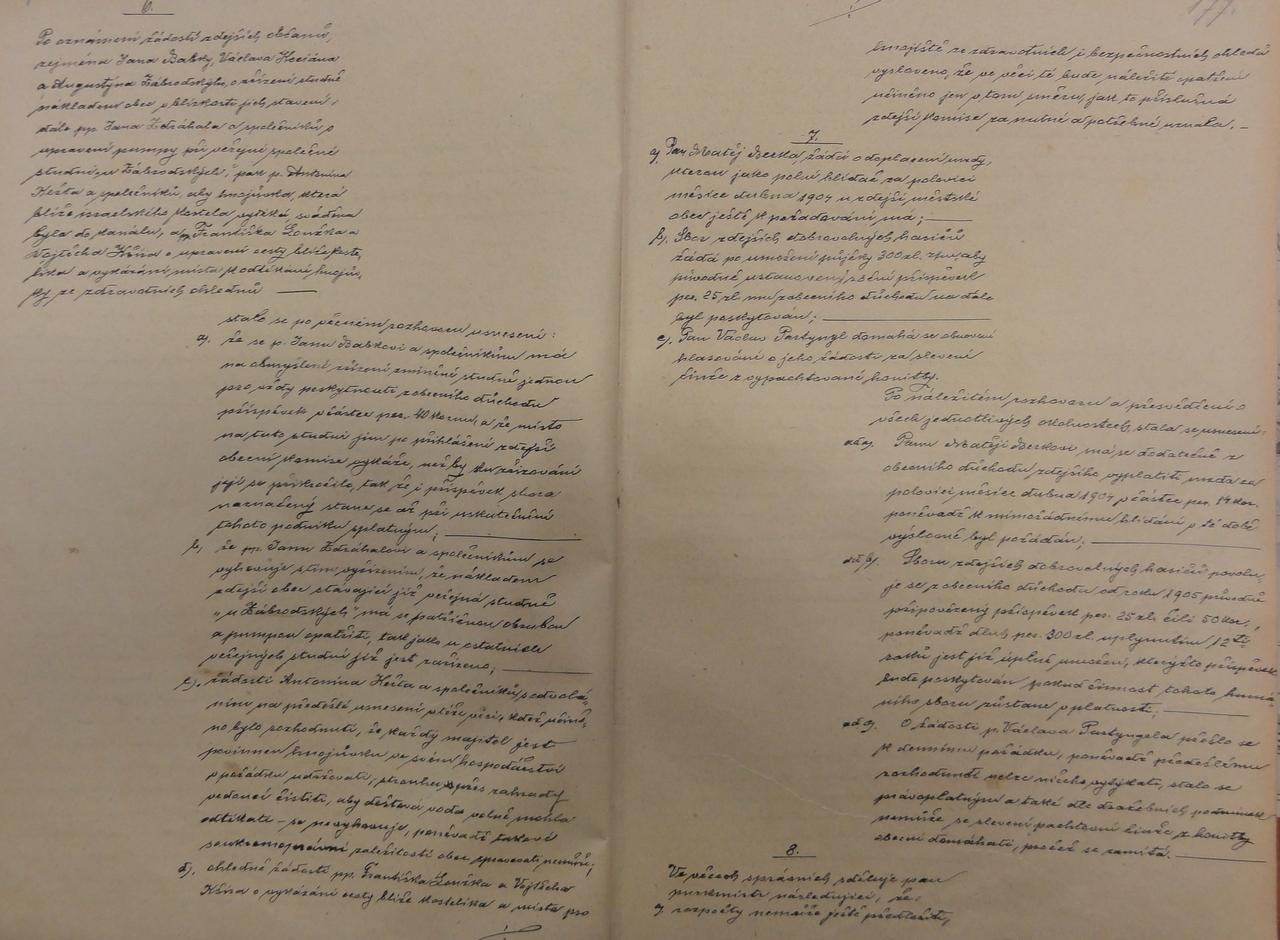 6.
Po oznámení žádostí zdejších občanů,
zejména Jana Babky, Václava Hociána
a Augustýna Zábrodského, o zřízení studně
nákladem obce v blízkosti jich stavení,
dále pp. Jana Zdráhala a společníků o
upravení pumpy při veřejné společné
studni „u Zábrodských“, pak p. Antonína
Hešta a společníků, aby hnojůvka, která
blíže israelského kostela vytéká, sváděna
byla do kanálu, a pp. Františka Loužka a
Vojtěcha Kříva o upravení cesty blíže koste-
líka a vykázání místa k odtékání hnojův-
ky ze zdravotních ohledů —
stalo se po věcném rozhovoru usnesení:
a). že se p. Janu Babkovi a společníkům má
na obmyšlení zřízení zmíněné studně jednou
pro vždy poskytnouti z obecního důchodu
příspěvek v částce per. 40 korun, a že místo
na tuto studni jim po přihlášení zdejší
obecní komise vykáže, nežby ku zřizování
její se přikročilo, tak, že i příspěvek shora
naznačený stane se až při uskutečnění
tohoto podniku splatným; —
b) že pp. Janu Zdráhalovi a společníkům se
vyhovuje s tím vyřízením, že nákladem
zdejší obce stávající již veřejná studně
„u Zábrodských“ má se patřičnou obrubou
a pumpou opatřiti, tak jako u ostatních
veřejných studní již jest zařízeno; —
c). žádosti Antonína Hešta a společníků, s odvolá-
ním na předešlé usnesení v téže věci, kdež učině-
no bylo rozhodnutí, že každý majitel jest
povinnen hnojůvku ve svém hospodářství
v pořádku udržovati, strouhu přes zahrady
vedoucí čistiti, aby dešťová voda volně mohla
odtékati – se nevyhovuje, poněvadž takové
soukromoprávní záležitosti obec spravovati nemůže;
d). ohledně žádosti pp. Františka Loužka a Vojtěcha
Kříva o vykázání cesty blíže kostelíka a místa pro
./.
177.
./.
hnojiště ze zdravotních i bezpečnostních ohledů
vysloveno, že ve věci té bude náležité opatření
učiněno jen v tom směru, jak to příslušná
zdejší komise za nutné a potřebné uznala. –
7.
a) Pan Matěj Becka, žádá o doplacení mzdy,
kterou jako polní hlídač za polovici
měsíce dubna 1904 u zdejší městské
obce ještě k pořadování má; —
b). Sbor zdejších dobrovolných hasičů
žádá po umoření půjčky 300 zl. zpěv, aby
původně ustanovený roční příspěvek
per. 25 zl. mu z obecního důchodu na dále
byl poskytován; —
c). Pan Václav Partyngl domáhá se obnovení
hlasování o jeho žádosti za slevení
činže z vypachtované honitby.
Po náležitém rozhovoru a přesvědčení o
všech jednotlivých okolnostech, stala se usnesení:
ad a). Panu Matěji Beckovi má se dodatečně z
obecního důchodu zdejšího vyplatiti mzda za
polovici měsíce dubna 1904 v částce per. 14 kor.
poněvadž k mimořádnému hlídání v té době
výslovně byl požádán; —
ad b). Sboru zdejších dobrovolných hasičů povolu-
je se z obecního důchodu od roku 1905 původně
připověděný příspěvek per. 25 zl. čili 50 kor.,
poněvadž dluh per. 300 zl. uplynutím 12ti
roků jest již úplně umořen, kterýžto příspěvek
bude poskytován, pokud činnost tohoto humá-
ního sboru zůstane v platnosti; —
ad c). O žádosti p. Václava Partyngela přešlo se
k dennímu pořádku, poněvadž předešlému
rozhodnutí nelze ničeho vytýkati, stalo se
právoplatným a také dle dražebních podmínek
nemůže se slevení pachtovní činže z honitby
obecní domáhati, pročež se zamítá. —
8.
Ve věcech správních sděluje pan
purkmistr následující, že:
a) rozpočty nemůže ještě předložiti,